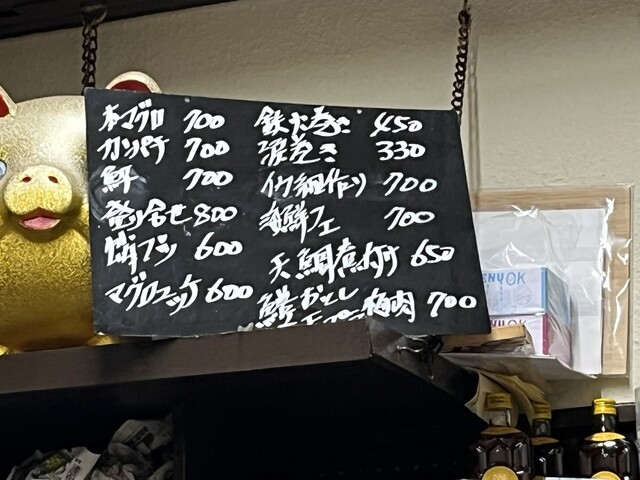 本マグロ 700
カンパチ 700
鮃 700
盛り合せ 800
マグロユッケ 600
600
鉄火巻き 450
巻き 330
イカ細作り 700
海鮮フェ 700
天鯛煮付け 650
鱧おとし 梅肉 700
OK